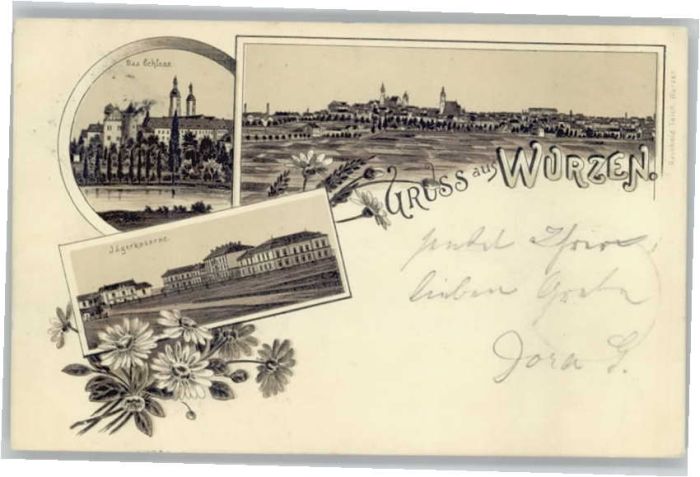 Das Schloss
GRUSS aus WURZEN.
Jägerkaserne.
sendet Ihrer
lieben Grete
Dora G.